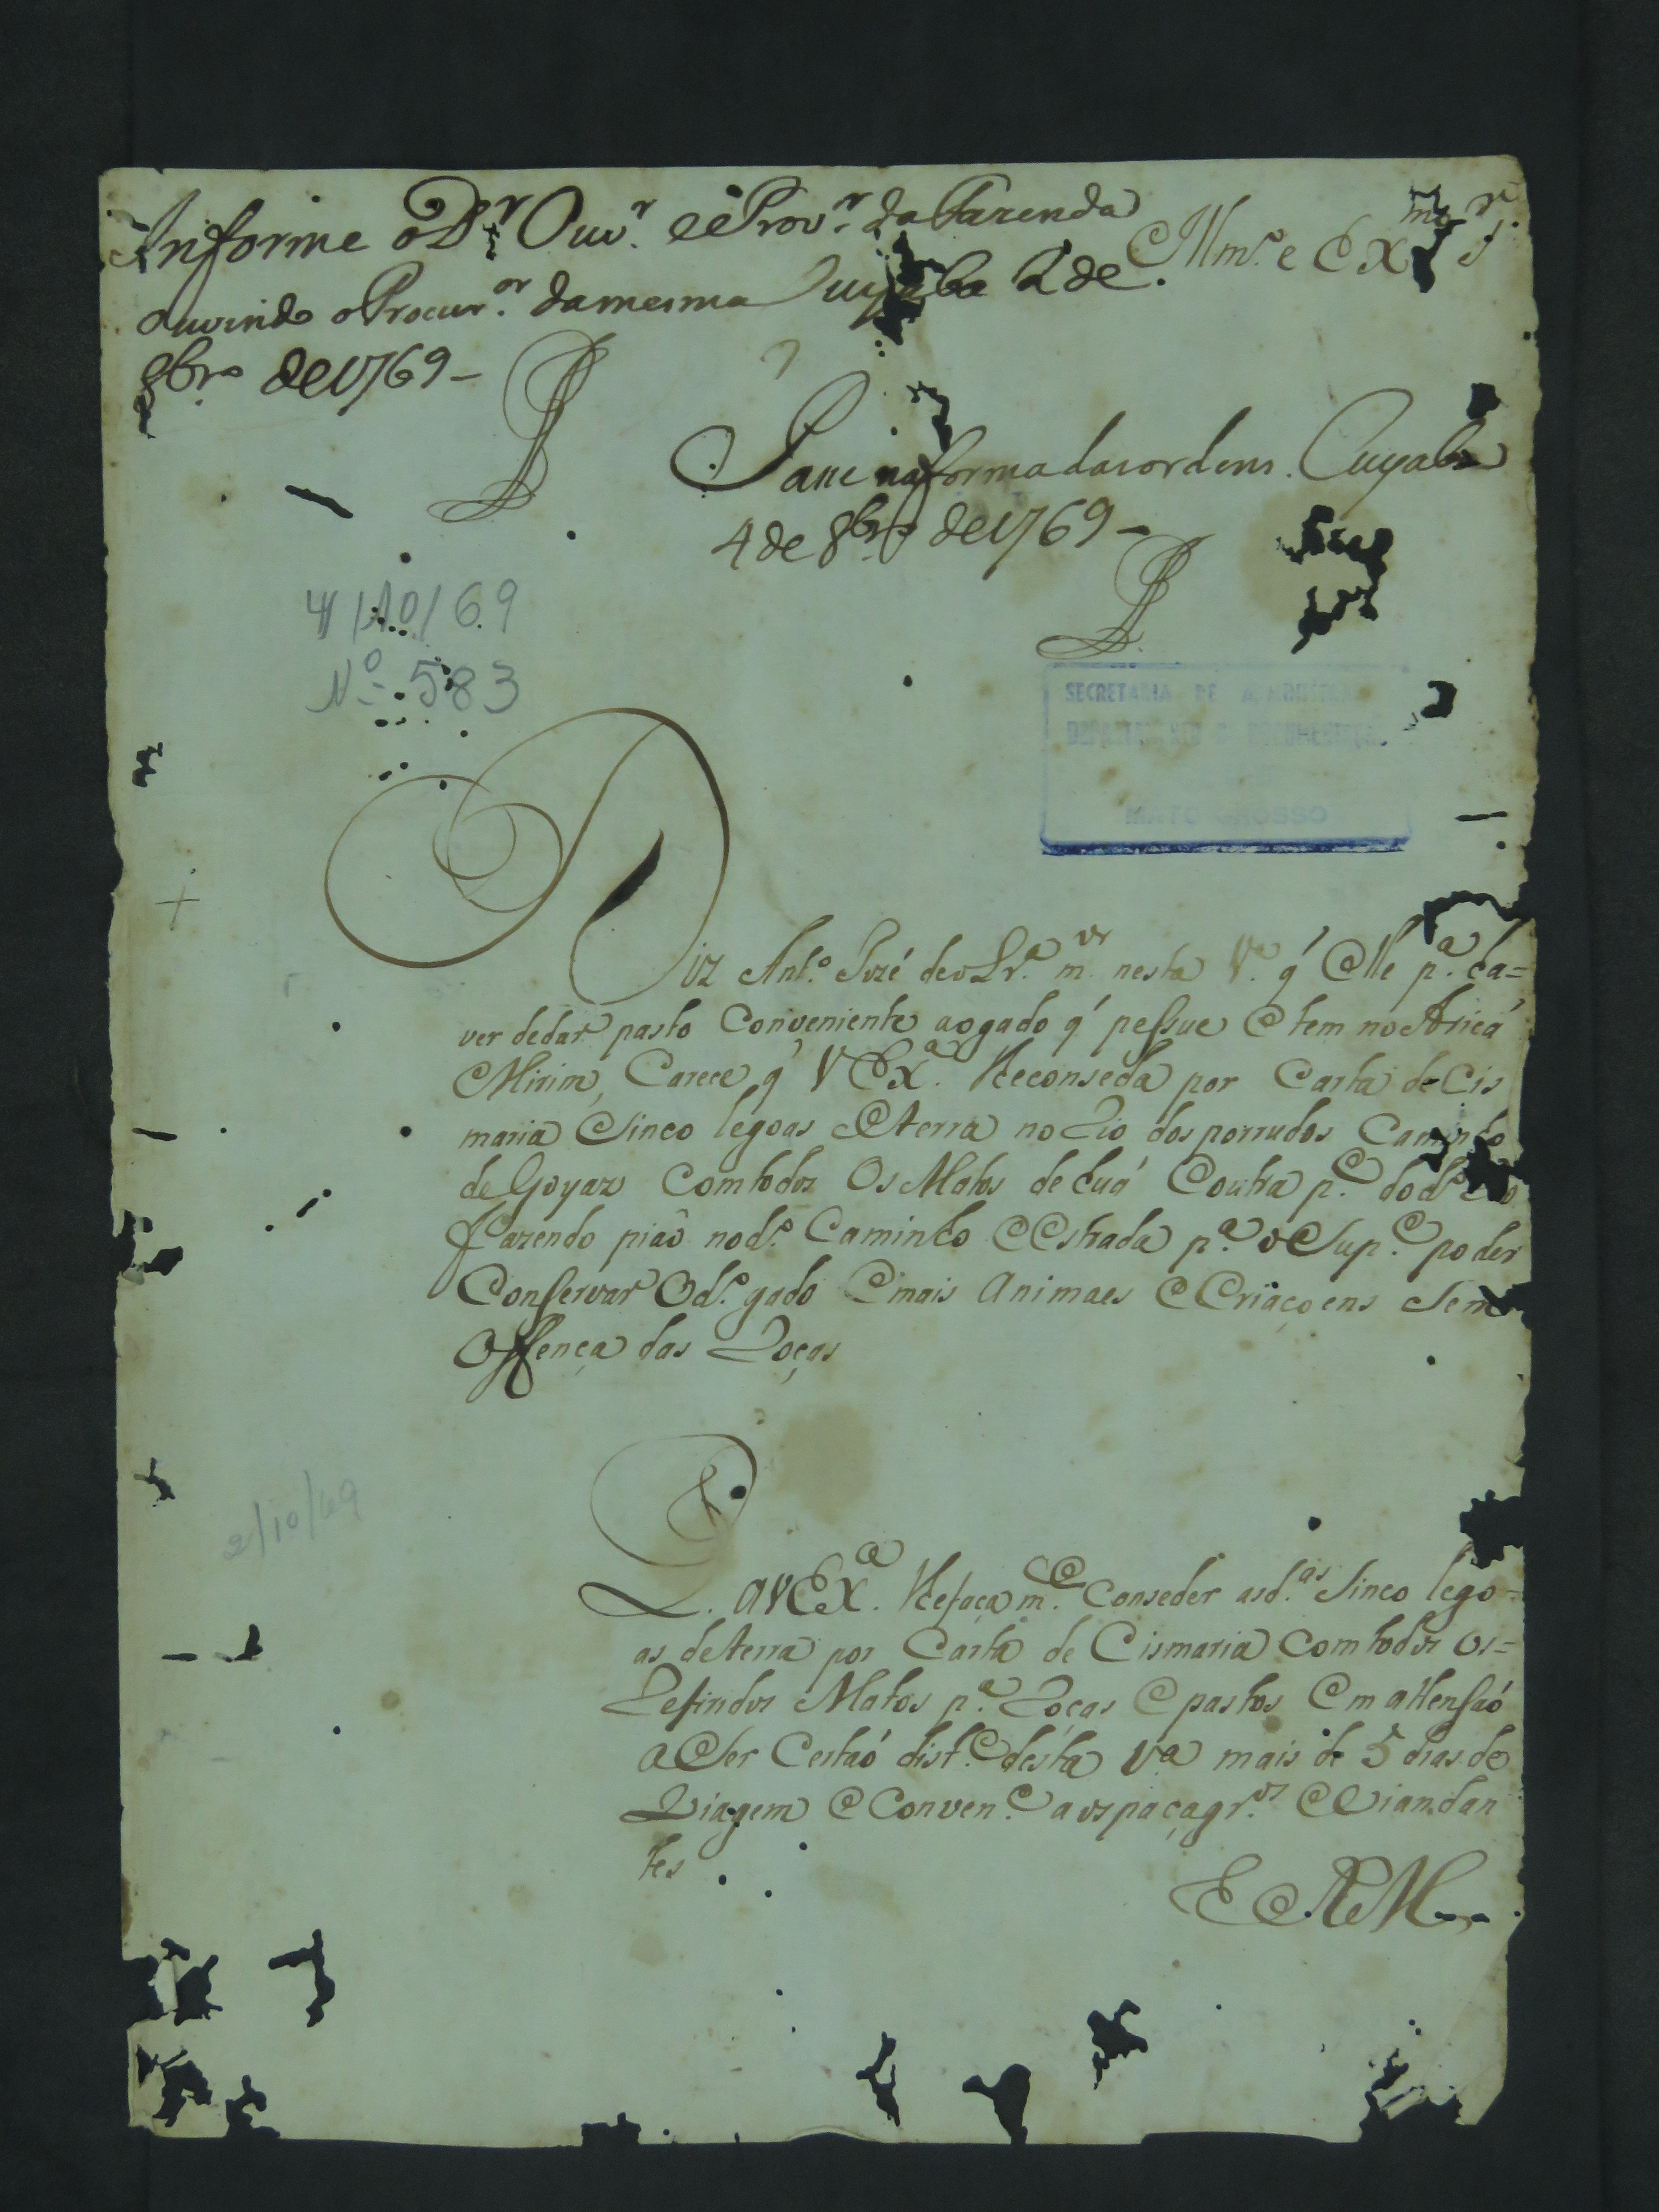 Informe o D.r Ouv.r e Prov.r da Fazenda
ouvindo o Procur.or da mesma Cuyaba 2 de
8br.o de 1769 –
Illm.o e Ex.mo S.r
Passe na forma das ordens. Cuyaba
4 de 8br.o de 1769 –
4/10/69
Nº 583
SECRETARIA DE
MATO GROSSO
Diz Ant.o Jozé de m.or nesta V.a q' Elle p.a ha=
ver de dar pasto Conveniente ao gado q' pessue E tem no Aricá
Mirim, Carece q' V Ex.a lhe conseda por Carta de Cis
maria Sinco legoas de terra no Rio dos porrudos Caminho
de Goyaz Com todos Os Matos de huá e outra p.e do d.o Rio
Fazendo piaó no d.o Caminho e Estrada p.a o Sup.e poder
Conservar O d.o gado E mais Animaes E Criaçoens Sem
Offença das Roças
P. a V Ex.a lhe faça m.ce Conseder as d.as Sinco lego=
as de terra por Carta de Cismaria Com todos os=
Refiridos Matos p.a Roças E pastos Em attensaó
a Ser Certaó dist.e desta V.a mais de 5 dias de
Viagem E Conven.e a os paçagr.os E Viandan
tes
E R M
2/10/69